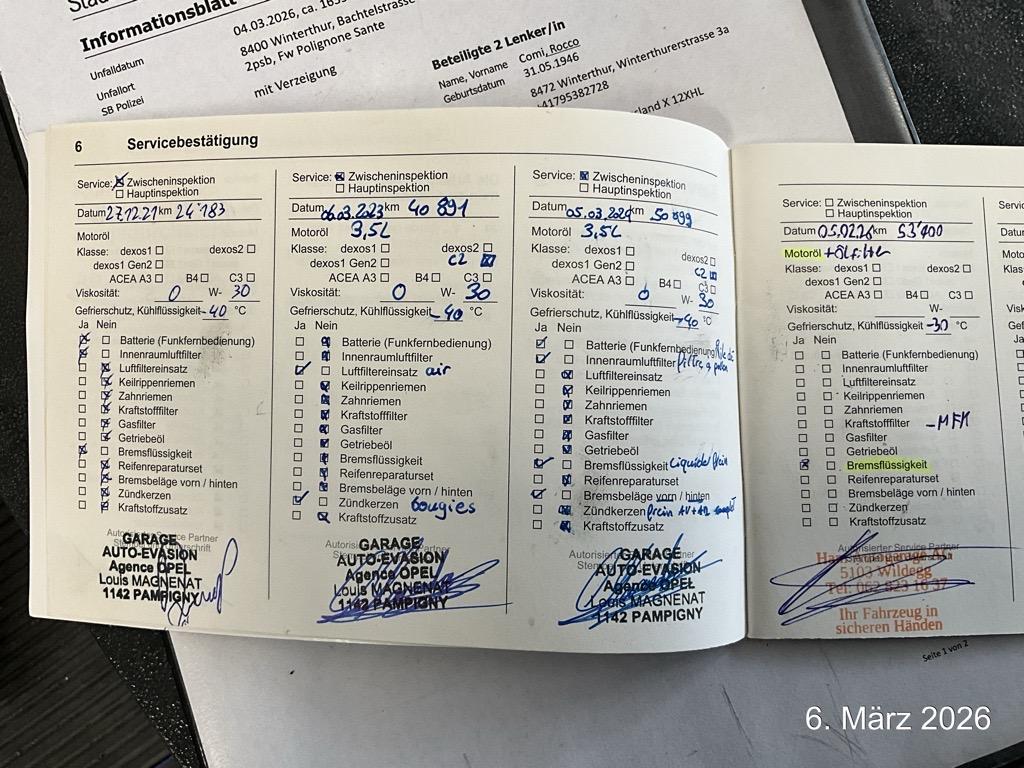 Informationsblatt
04.03.2026, ca.
Unfalldatum
8400 Winterthur, Bachtelstrasse
Unfallort
2psb, Fw Polignone Sante
SB Polizei
mit Verzeigung
Beteiligte 2 Lenker/in
Name, Vorname Comi, Rocco
Geburtsdatum 31.05.1946
8472 Winterthur, Winterthurerstrasse 3a
41795382728
X 12XHL
6 Servicebestätigung
Service: Zwischeninspektion
Hauptinspektion
Datum 27.12.21 km 24'183
Motoröl
Klasse: dexos1 dexos2
dexos1 Gen2
ACEA A3 B4 C3
Viskosität: 0 W- 30
Gefrierschutz, Kühlflüssigkeit -40 °C
Ja Nein
Batterie (Funkfernbedienung)
Innenraumluftfilter
Luftfiltereinsatz
Keilrippenriemen
Zahnriemen
Kraftstofffilter
Gasfilter
Getriebeöl
Bremsflüssigkeit
Reifenreparaturset
Bremsbeläge vorn / hinten
Zündkerzen
Kraftstoffzusatz
GARAGE
AUTO-EVASION
Agence OPEL
Louis MAGNENAT
1142 PAMPIGNY
Service: Zwischeninspektion
Hauptinspektion
Datum 06.03.2023 km 40 891
Motoröl 3,5L
Klasse: dexos1 dexos2
dexos1 Gen2 C2
ACEA A3 B4 C3
Viskosität: 0 W- 30
Gefrierschutz, Kühlflüssigkeit -40 °C
Ja Nein
Batterie (Funkfernbedienung)
Innenraumluftfilter
Luftfiltereinsatz air
Keilrippenriemen
Zahnriemen
Kraftstofffilter
Gasfilter
Getriebeöl
Bremsflüssigkeit
Reifenreparaturset
Bremsbeläge vorn / hinten
Zündkerzen bougies
Kraftstoffzusatz
GARAGE
AUTO-EVASION
Agence OPEL
Louis MAGNENAT
1142 PAMPIGNY
Service: Zwischeninspektion
Hauptinspektion
Datum 05.03.2024 km 50 899
Motoröl 3,5L
Klasse: dexos1 dexos2
dexos1 Gen2 C2
ACEA A3 B4 C3
Viskosität: 0 W- 30
Gefrierschutz, Kühlflüssigkeit -40 °C
Ja Nein
Batterie (Funkfernbedienung)
Innenraumluftfilter filtre a pollen
Luftfiltereinsatz
Keilrippenriemen
Zahnriemen
Kraftstofffilter
Gasfilter
Getriebeöl
Bremsflüssigkeit Liquide frein
Reifenreparaturset
Bremsbeläge vorn / hinten
Zündkerzen frein AV + AR
Kraftstoffzusatz
GARAGE
AUTO-EVASION
Agence OPEL
Louis MAGNENAT
1142 PAMPIGNY
Service: Zwischeninspektion
Hauptinspektion
Datum 05.02.26 km 53'400
Motoröl + Ölfilter
Klasse: dexos1 dexos2
dexos1 Gen2
ACEA A3 B4 C3
Viskosität: W-
Gefrierschutz, Kühlflüssigkeit -30 °C
Ja Nein
Batterie (Funkfernbedienung)
Innenraumluftfilter
Luftfiltereinsatz
Keilrippenriemen
Zahnriemen
Kraftstofffilter - MFK
Gasfilter
Getriebeöl
Bremsflüssigkeit
Reifenreparaturset
Bremsbeläge vorn / hinten
Zündkerzen
Kraftstoffzusatz
Autorisierter Service Partner
5103 Wildegg
Ihr Fahrzeug in
sicheren Händen
Seite 1 von 2
6. März 2026